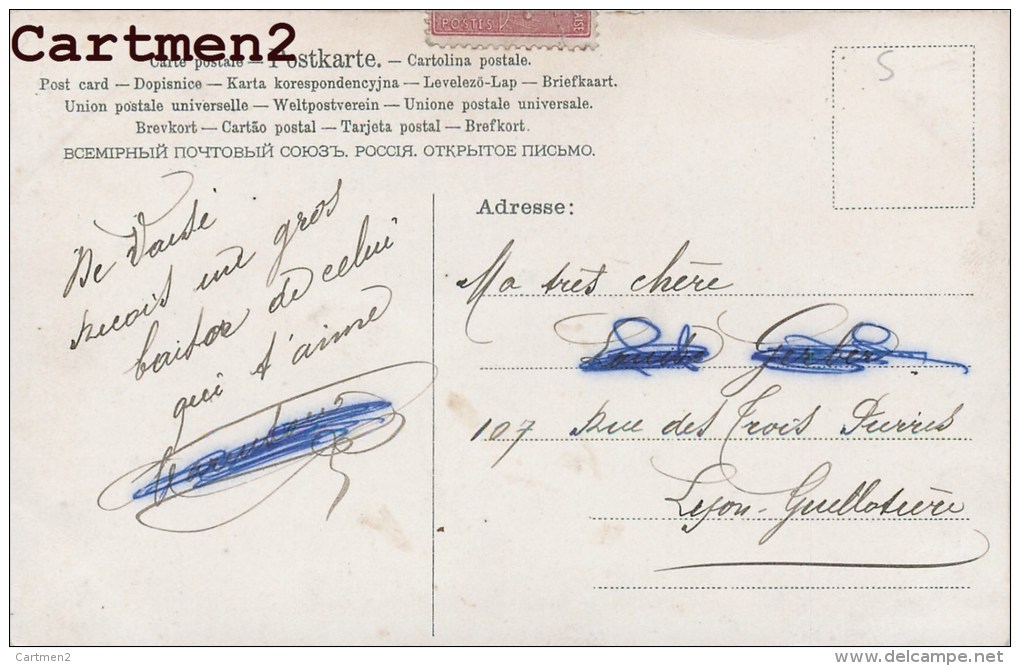 Cartmen2
POSTES
Carte postale — Postkarte. — Cartolina postale.
Post card — Dopisnice — Karta korespondencyjna — Levelező-Lap — Briefkaart.
Union postale universelle — Weltpostverein — Unione postale universale.
Brevkort — Cartão postal — Tarjeta postal — Brefkort.
ВСЕМІРНЫЙ ПОЧТОВЫЙ СОЮЗЪ. РОССІЯ. ОТКРЫТОЕ ПИСЬМО.
5
Adresse:
recois un gros
baiser de celui
qui t'aime
Ma très chère
Gerber
107 Rue des Trois Pierres
Lyon-Guillotière
Cartmen2
delcampe.net